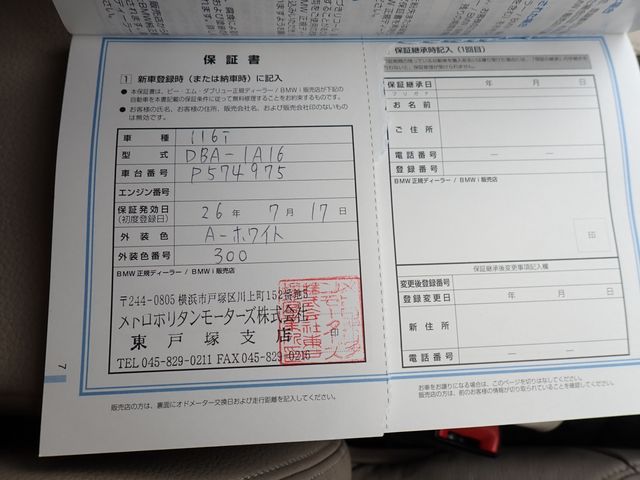 保証書
1 新車登録時(または納車時)に記入
● 本保証書は、ビー・エム・ダブリュー正規ディーラー/BMWi販売店が下記の
自動車を本書記載の保証条件に従って無料修理することをお約束するものです。
● お客様の氏名、お客様の住所、販売会社名、および販売会社印のないもの
は無効です。
車種 116i
型式 DBA-1A16
車台番号 P574975
エンジン番号
保証発効日
(初度登録日) 26年 7月 17日
外装色 A-ホワイト
外装色番号 300
BMW正規ディーラー/BMWi販売店
〒244-0805 横浜市戸塚区川上町152番地5
メトロポリタンモーターズ株式会社
東戸塚支店
TEL 045-829-0211 FAX 045-829-0216
販売店の方は、裏面にオドメーター交換日および走行距離を記入してください。
7
保証継承時記入(1回目)
保証継承日 年 月 日
フリガナ
お名前
ご住所
電話番号 — —
登録番号
BMW正規ディーラー/BMWi販売店
印
保証継承後変更事項記入欄
変更後登録番号
登録変更日 年 月 日
新住所
電話番号 — —
お車をお譲りになる場合は、このページを切りはなしてください。
販売店の方は、前のお客様の情報が切り取られていることを確認してください。